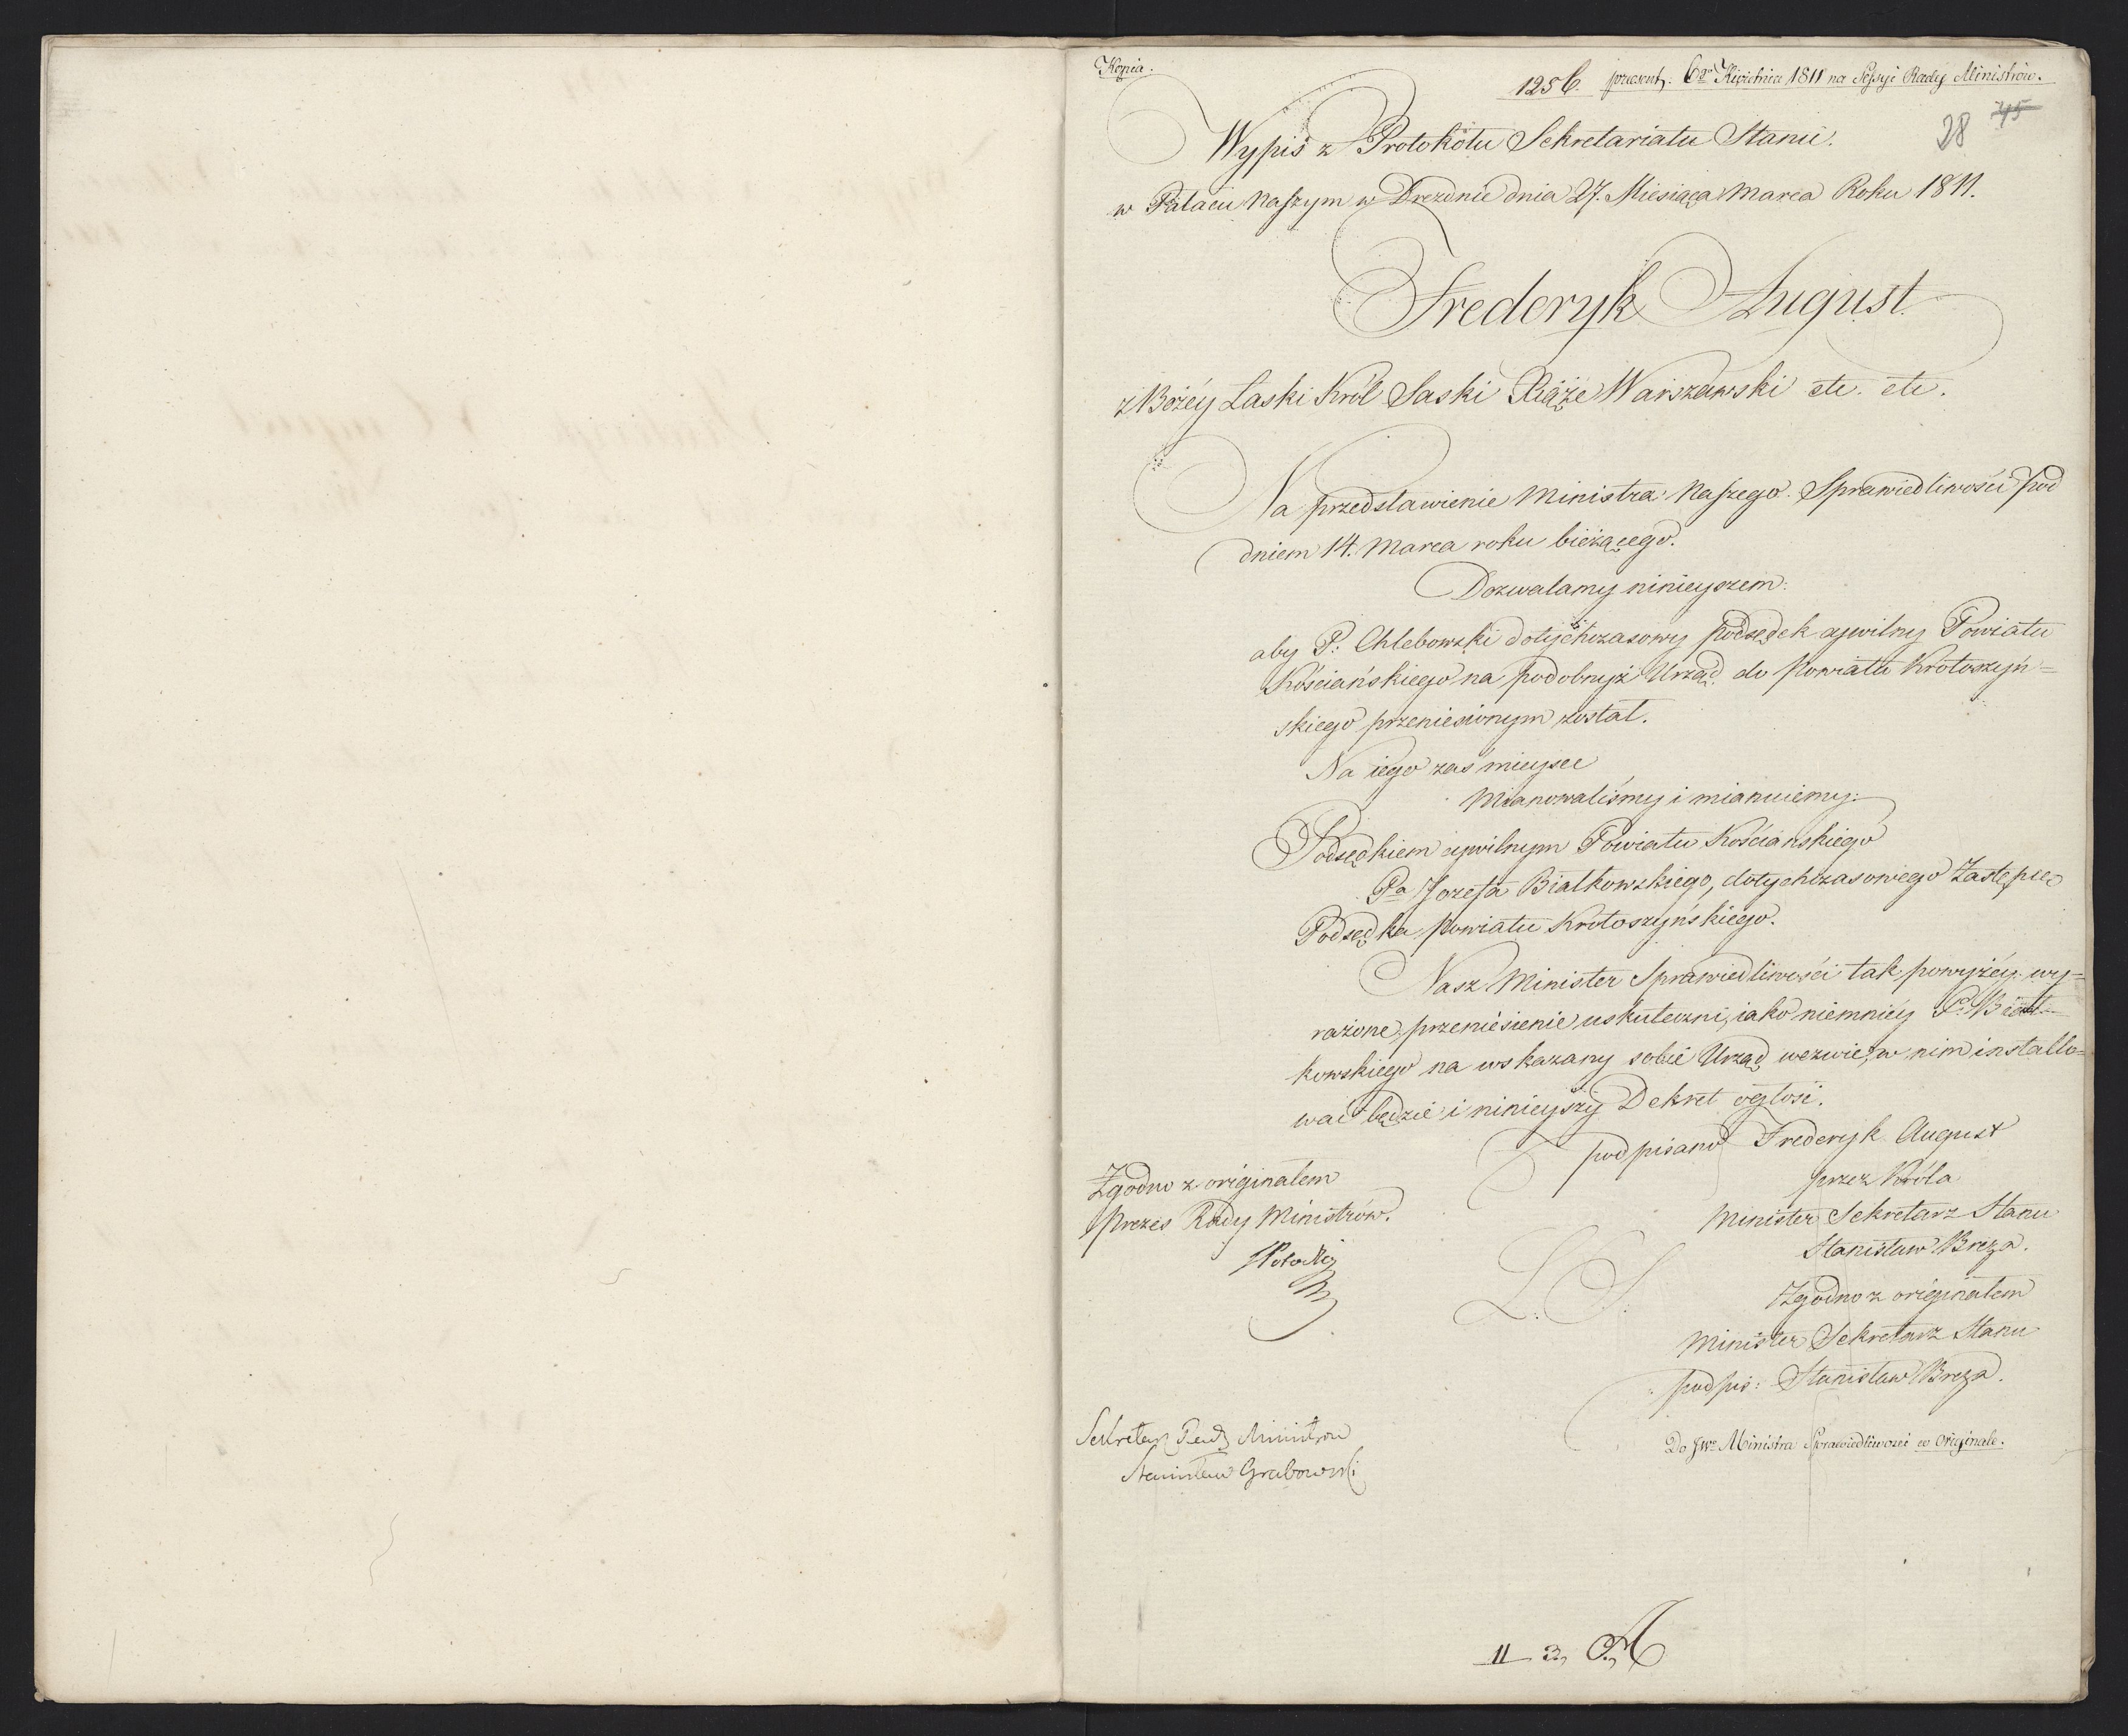 Kopia.
1256. praesent: 6go Kwietnia 1811 na Sessyi Rady Ministrów.
28 45
Wypis z Protokółu Sekretariatu Stanu.
w Pałacu Naszym w Dreznie dnia 27. Miesiąca Marca Roku 1811.
Frederyk August
z Bożéy Łaski Król Saski Xiąże Warszawski etc. etc.
Na przedstawienie Ministra Naszego Sprawiedliwości pod
dniem 14. Marca roku bieżącego.
Dozwalamy ninieyszem:
aby P: Chlebowski dotychczasowy podsędek cywilny Powiatu
Kościańskiego na podobnyż Urząd do Powiatu Krotoszyń=
skiego przeniesionym został.
Na iego zaś mieysce
Mianowaliśmy i mianuiemy:
Podsędkiem cywilnym Powiatu Kościańskiego
Pa Jozefa Białkowskiego, dotychczasowego Zastępcę
Podsędka Powiatu Krotoszyńskiego.
Nasz Minister Sprawiedliwości tak powyżéy wy=
rażone przeniesienie uskuteczni, iako niemniéy P. Biał=
kowskiego na wskazany sobie Urząd wezwie, w nim installo=
wać będzie i ninieyszy Dekret ogłosi.
podpisano Frederyk August
przez Króla
Minister Sekretarz Stanu
Stanisław Breza.
Zgodno z originałem
Prezes Rady Ministrów.
Potocki
L. S.
Zgodno z originałem
Minister Sekretarz Stanu
podpis: Stanisław Breza.
Sekretarz Rady Ministrów
Stanisław Grabowski
Do JWo Ministra Sprawiedliwości w Originale.
II 3,